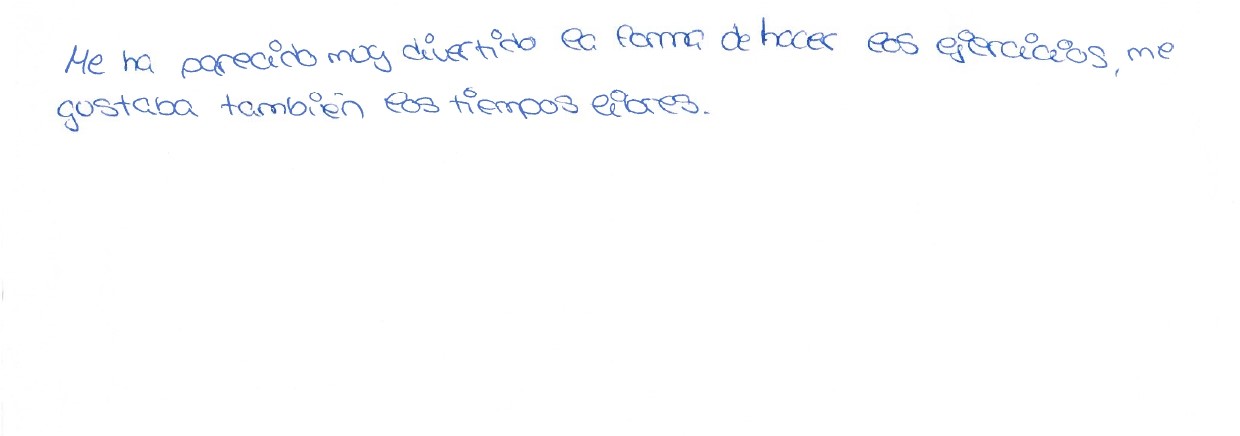 Me ha parecido muy divertido la forma de hacer los ejercicios, me
gustaba también los tiempos libres.